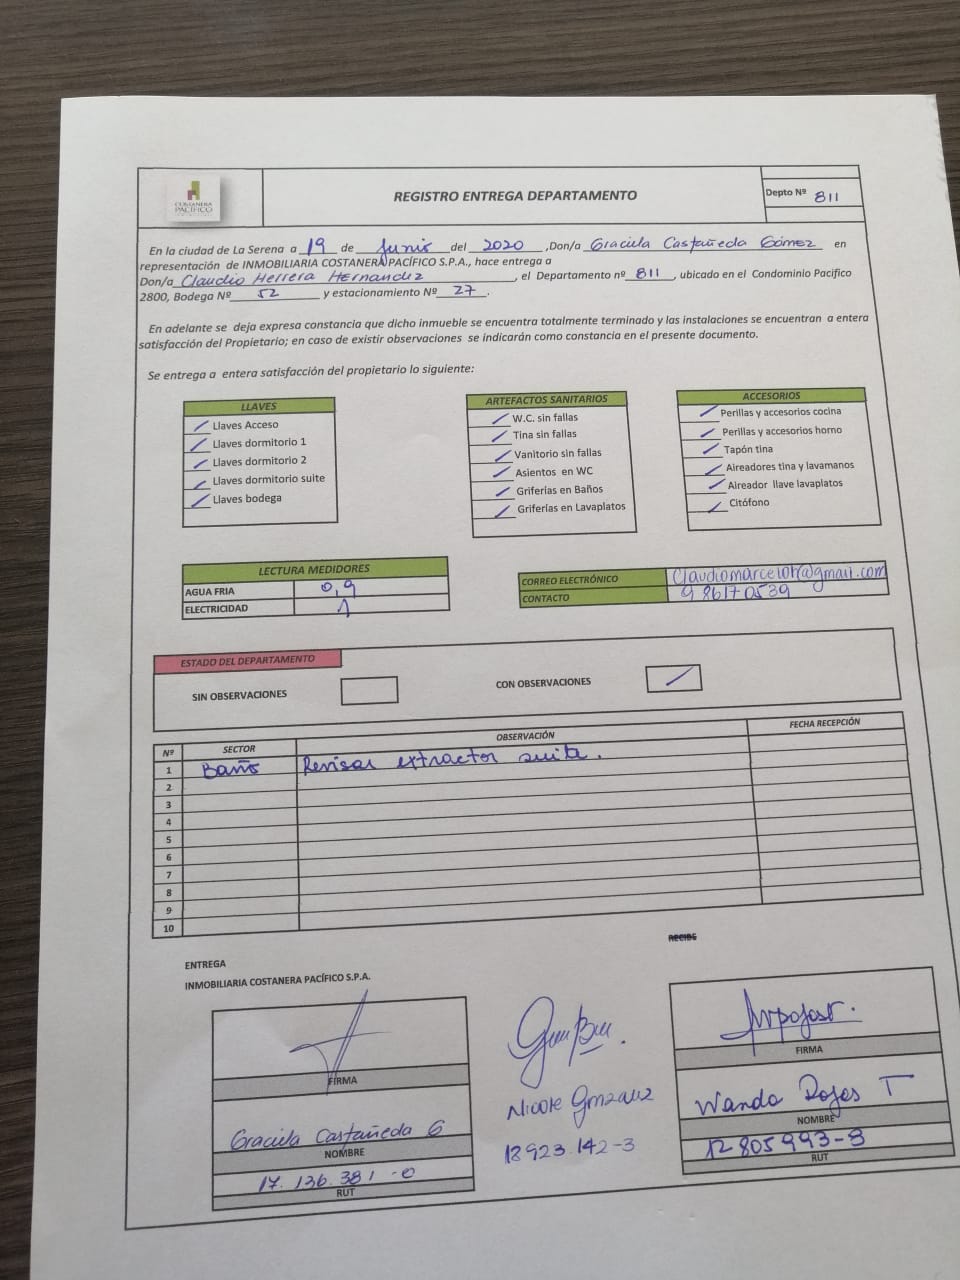 COSTANERA
PACÍFICO
REGISTRO ENTREGA DEPARTAMENTO
Depto Nº 811
En la ciudad de La Serena a 19 de Junio del 2020 ,Don/a Graciela Castañeda Gómez en
representación de INMOBILIARIA COSTANERA PACÍFICO S.P.A., hace entrega a
Don/a Claudio Herrera Hernandez , el Departamento nº 811 , ubicado en el Condominio Pacifico
2800, Bodega Nº 52 y estacionamiento Nº 27 .
En adelante se deja expresa constancia que dicho inmueble se encuentra totalmente terminado y las instalaciones se encuentran a entera
satisfacción del Propietario; en caso de existir observaciones se indicarán como constancia en el presente documento.
Se entrega a entera satisfacción del propietario lo siguiente:
LLAVES
Llaves Acceso
Llaves dormitorio 1
Llaves dormitorio 2
Llaves dormitorio suite
Llaves bodega
ARTEFACTOS SANITARIOS
W.C. sin fallas
Tina sin fallas
Vanitorio sin fallas
Asientos en WC
Griferías en Baños
Griferías en Lavaplatos
ACCESORIOS
Perillas y accesorios cocina
Perillas y accesorios horno
Tapón tina
Aireadores tina y lavamanos
Aireador llave lavaplatos
Citófono
LECTURA MEDIDORES
AGUA FRIA 0,9
ELECTRICIDAD 1
CORREO ELECTRÓNICO claudiomarceloh@gmail.com
CONTACTO 9 86170539
ESTADO DEL DEPARTAMENTO
SIN OBSERVACIONES
CON OBSERVACIONES
Nº SECTOR OBSERVACIÓN FECHA RECEPCIÓN
1 Baño Revisar extractor suite.
2
3
4
5
6
7
8
9
10
ENTREGA
INMOBILIARIA COSTANERA PACÍFICO S.P.A.
FIRMA
Graciela Castañeda G
NOMBRE
17.136.381-0
RUT
Nicole Gonzalez
18923.142-3
RECIBE
FIRMA
Wanda Rojas T
NOMBRE
12805993-8
RUT